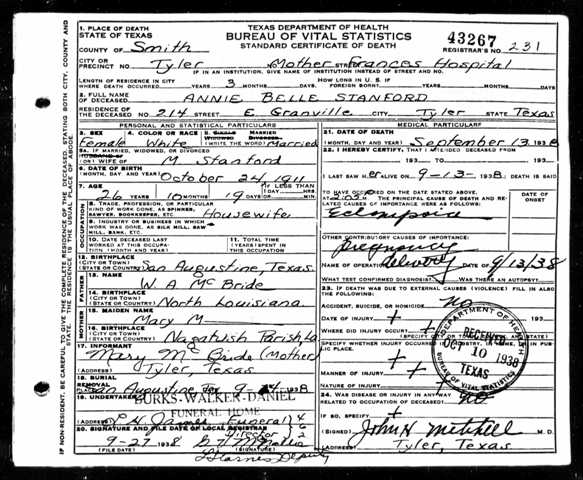 1. PLACE OF DEATH
STATE OF TEXAS
TEXAS DEPARTMENT OF HEALTH
BUREAU OF VITAL STATISTICS
STANDARD CERTIFICATE OF DEATH
43267
REGISTRAR'S NO. 231
COUNTY OF Smith
CITY OR PRECINCT NO. Tyler Mother Frances Hospital
IF IN AN INSTITUTION, GIVE NAME OF INSTITUTION INSTEAD OF STREET AND NO.
LENGTH OF RESIDENCE IN CITY WHERE DEATH OCCURRED YEARS 3 MONTHS DAYS HOW LONG IN U. S. IF FOREIGN BORN. YEARS MONTHS DAYS
2. FULL NAME OF DECEASED ANNIE BELLE STANFORD
RESIDENCE OF THE DECEASED 214 STREET E Granville CITY Tyler STATE Texas
PERSONAL AND STATISTICAL PARTICULARS
3. SEX Female 4. COLOR OR RACE White (WRITE THE WORD) Married
5. IF MARRIED, WIDOWED, OR DIVORCED
(OR) WIFE OF M Stanford
6. DATE OF BIRTH
(MONTH, DAY AND YEAR) October 24, 1911
7. AGE 26 YEARS 10 MONTHS 19 DAYS IF LESS THAN 1 DAY HRS MIN
8. TRADE, PROFESSION, OR PARTICULAR KIND OF WORK DONE, AS SPINNER, SAWYER, BOOKKEEPER, ETC Housewife
9. INDUSTRY OR BUSINESS IN WHICH WORK WAS DONE, AS SILK MILL, SAW MILL, BANK, ETC.
10. DATE DECEASED LAST WORKED AT THIS OCCUPATION (MONTH AND YEAR)
11. TOTAL TIME (YEARS) SPENT IN THIS OCCUPATION
12. BIRTHPLACE (CITY OR TOWN)
(STATE OR COUNTRY) San Augustine, Texas
FATHER
13. NAME W. A. McBride
14. BIRTHPLACE (CITY OR TOWN)
(STATE OR COUNTRY) North Louisiana
MOTHER
15. MAIDEN NAME Mary M
16. BIRTHPLACE (CITY OR TOWN)
(STATE OR COUNTRY) Parish, La
17. INFORMANT Mary McBride (Mother)
(ADDRESS) Tyler, Texas
18. BURIAL
REMOVAL San Augustine 9 1938
19. UNDERTAKER BURKS-WALKER-DANIEL
FUNERAL HOME
20. SIGNATURE AND FILE DATE OF LOCAL REGISTRAR
9-27-1938
(FILE DATE) (SIGNATURE)
Deputy
MEDICAL PARTICULARS
21. DATE OF DEATH
(MONTH, DAY AND YEAR) September 13 1938
22. I HEREBY CERTIFY THAT I ATTENDED DECEASED FROM
193 TO 193
I LAST SAW her ALIVE ON 9-13-1938, DEATH IS SAID
TO HAVE OCCURRED ON THE DATE STATED ABOVE,
AT M. THE PRINCIPAL CAUSE OF DEATH AND RELATED CAUSES OF IMPORTANCE WERE AS FOLLOWS:
DATE OF ONSET
OTHER CONTRIBUTORY CAUSES OF IMPORTANCE:
pregnancy
NAME OF OPERATION delivery DATE OF 9/13/38
WHAT TEST CONFIRMED DIAGNOSIS? WAS THERE AN AUTOPSY
23. IF DEATH WAS DUE TO EXTERNAL CAUSES (VIOLENCE) FILL IN ALSO THE FOLLOWING:
ACCIDENT, SUICIDE, OR HOMICIDE? No 193
DATE OF INJURY +
WHERE DID INJURY OCCUR? +
SPECIFY WHETHER INJURY OCCURRED IN INDUSTRY, IN HOME, OR IN PUBLIC PLACE. +
MANNER OF INJURY +
NATURE OF INJURY +
24. WAS DISEASE OR INJURY IN ANY WAY RELATED TO OCCUPATION OF DECEASED? no
IF SO, SPECIFY +
(SIGNED) John H Mitchell M. D.
(ADDRESS) Tyler, Texas
DEPARTMENT OF HEALTH
RECEIVED
OCT 10 1938
TEXAS
BUREAU OF VITAL STATISTICS